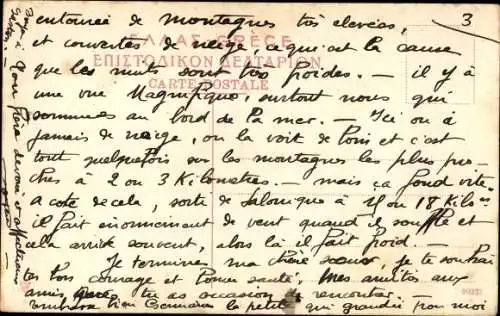 3
entourée de montagnes très elevées,
et couvertes de neige, ce qui est la cause
ΕΛΛΑΣ-GRÈCE
que les nuits sont très froides. — il y à
ΕΠΙΣΤΟΛΙΚΟΝ ΔΕΛΤΑΡΙΟΝ
CARTE POSTALE
une vue Magnifique, surtout nous qui
sommes au bord de la mer. — Ici on à
jamais de neige, on la voit de loin et c'est
tout quelquefois sur les montagnes les plus pro-
ches à 2 ou 3 Kilomètres — mais ça fond vite,
a coté de cela, sorti de Salonique à 17 ou 18 Kilos
il fait enormement de vent quand il souffle et
cela arrive souvent, alors là il fait froid. —
Je termine ma chère sœur, je te souhai
tes bon courage et bonne santé. Mes amitiés aux
amis que tu as occasion de rencontrer. —
embrasse bien Germaine la petite qui grandie pour moi
Ton Frère devoué et affectionné